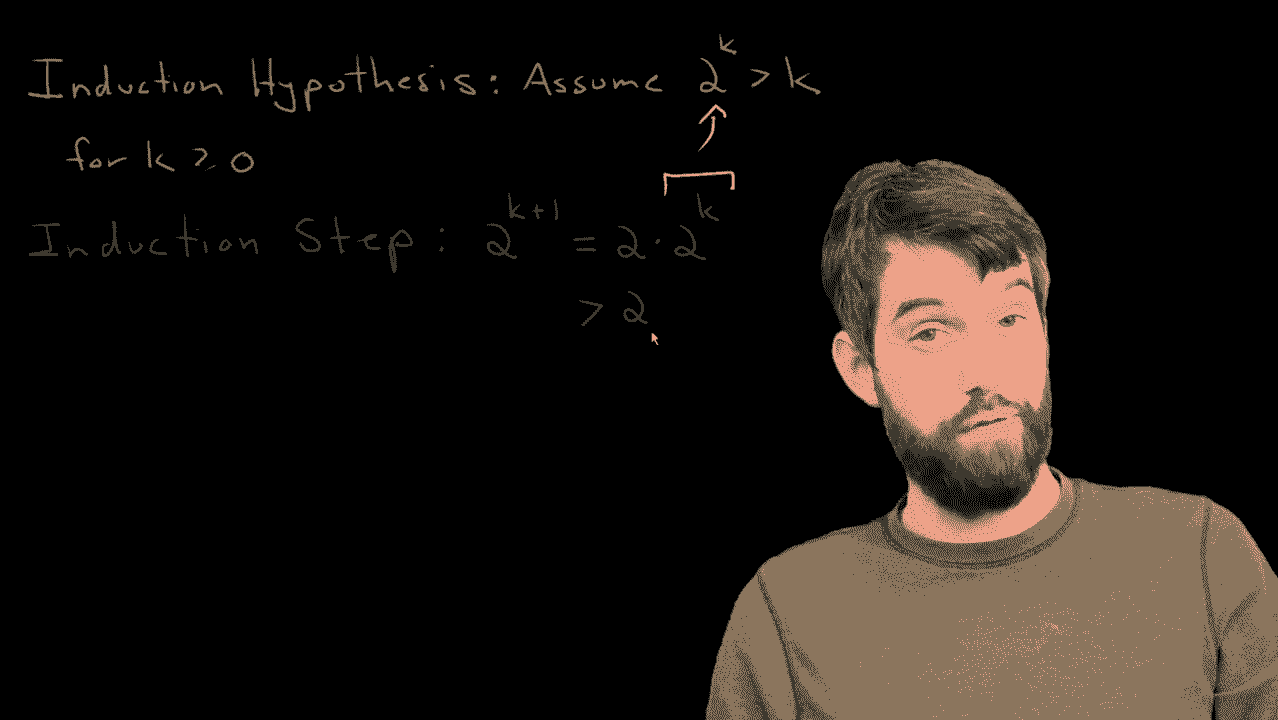 Induction Hypothesis: Assume 2^k > k
for k ≥ 0
Induction Step: 2^{k+1} = 2 · 2^k
> 2